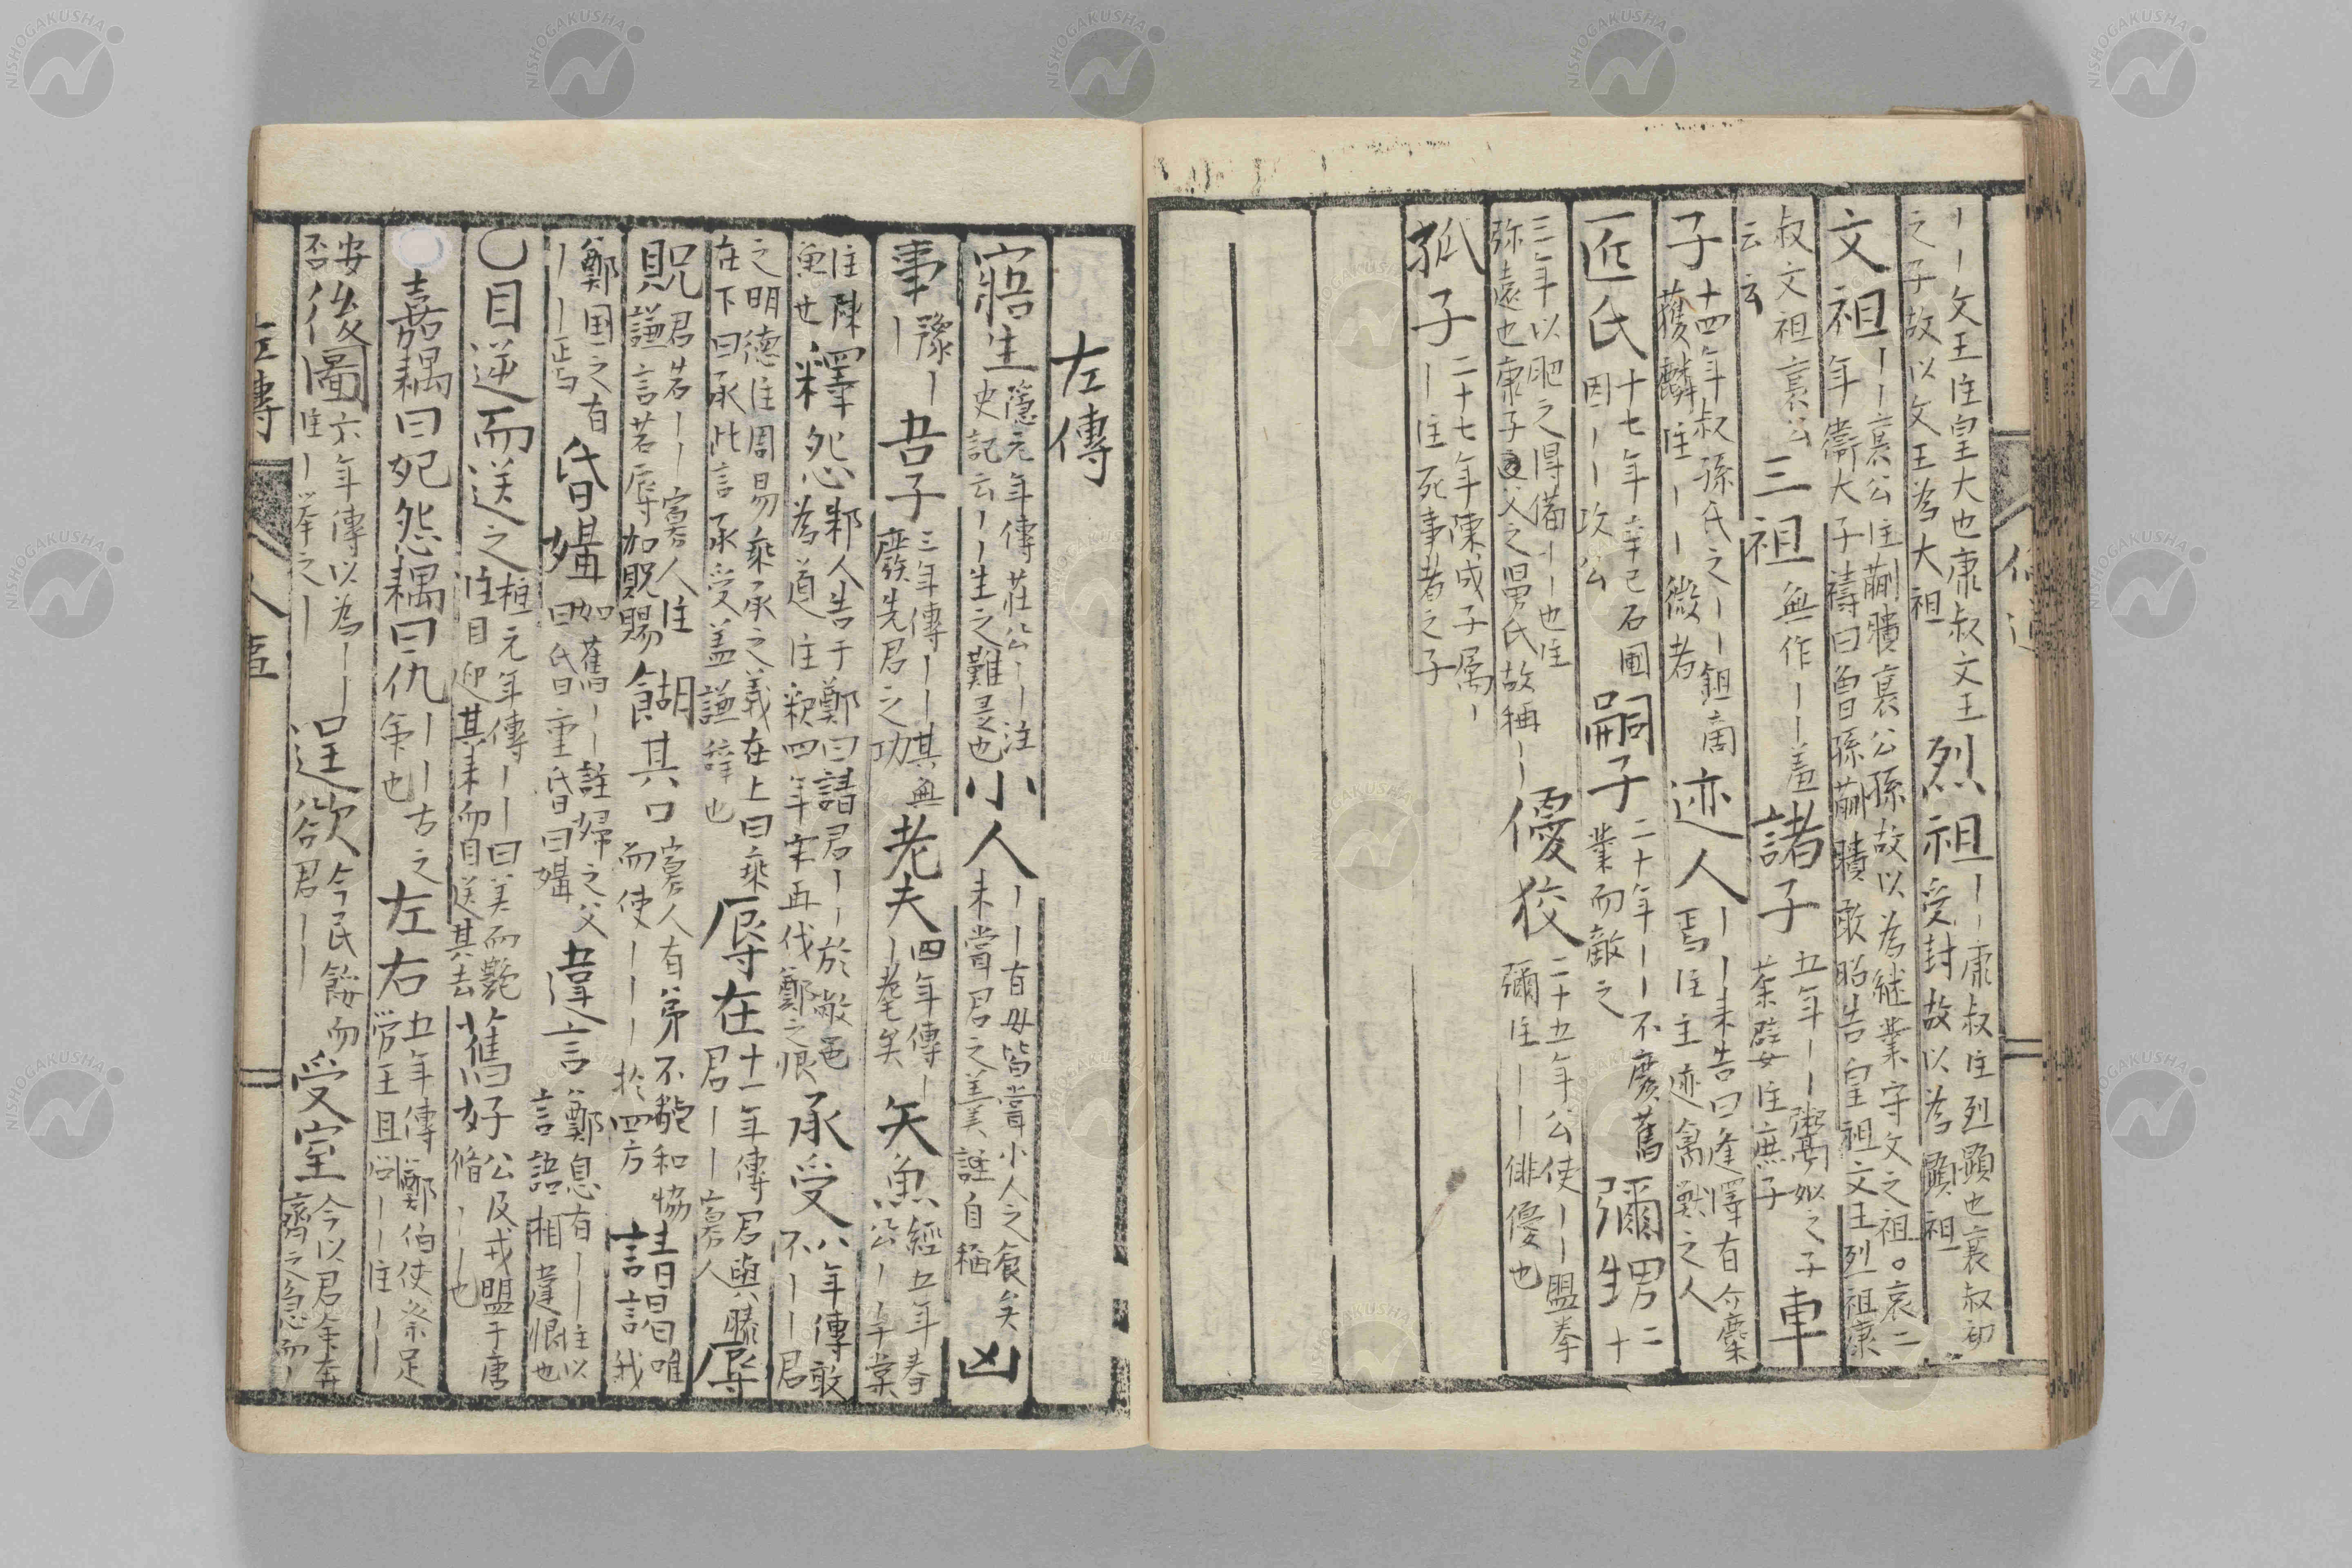 丨丨文王注皇大也康叔文王
之子故以文王為大祖
烈祖丨丨康叔注烈顕也襄叔初
受封故以為顕祖
文祖丨丨襄公注蒯聵襄公孫故以為継業守文之祖。哀二
年衞大子禱曰曽孫蒯聵敢昭告皇祖文王烈祖康
叔文祖襄公
云云
三祖無作丨丨羞
諸子五年丨丨鬻姒之子
荼嬖注庶子
車
子十四年叔孫氏之丨丨鉏商
獲麟注丨丨微者
迹人丨丨来告曰逢澤有介麋
焉注主迹禽獣之人
匠氏十七年辛巳石圃
因丨丨攻公
嗣子二十年丨丨不廃舊
業而敵之
彌甥二十
三年以肥之得備丨丨也注
弥遠也康子父之舅氏故稱丨
優狡二十五年公使丨丨盟拳
彌注丨丨俳優也
孤子二十七年陳成子属丨
丨注死事者之子
左傳
寤生隠元年傳荘公丨丨注
史記云丨丨生之難是也
小人丨丨有母皆嘗小人之食矣
未嘗君之羹註自稱
凶
事豫丨丨
吾子三年傳丨丨其無
廢先君之功
老夫四年傳丨
丨耄矣
矢魚經五年春
公丨丨于棠
注陳
魚也
釋怨邾人告于鄭曰請君丨丨於敝邑
為道注釈四年宋再伐鄭之恨
承受八年傳敢
不丨丨君
之明德注周易乘承之義在上曰乘
在下曰承此言承受蓋謙辞也
辱在十一年傳君與滕
君丨丨寡人
辱
貺君若丨丨寡人注
謙言若辱加貺賜
餬其口寡人有弟不能和協
而使丨丨丨於四方
請謁曰唯
我
鄭国之有
丨丨焉
昏媾如舊丨丨註婦之父
曰昏重昏曰媾
違言鄭息有丨丨注以
言語相違恨也
〇目逆而送之桓元年傳丨丨曰美而艶
注目迎其来而目送其去
舊好公及戎盟于唐
脩丨丨也
嘉耦曰妃怨耦曰仇丨丨古之
命也
左右五年傳鄭伯使祭足
労王且問丨丨注丨丨
安
否
後圖六年傳以為丨丨
注丨丨挙之丨
逞欲今民餒而
君丨丨
受室今以君命奔
齊之急而丨
左傳
人事